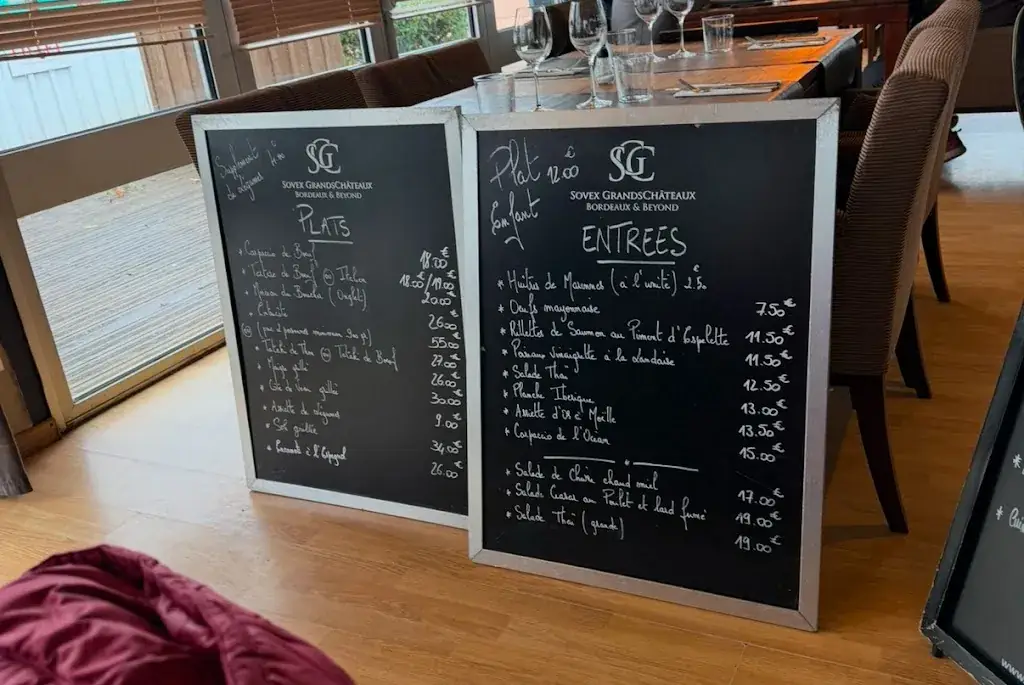 Supplément 4.00
de légumes
SGC
SOVEX GRANDSCHÂTEAUX
BORDEAUX & BEYOND
PLATS
* Carpaccio de Bœuf 18.00€
* Tartare de Bœuf ou Italien 18.00/19.00€
(Onglet) 20.00€
* Entrecôte 26.00€
55.00€
* Tataki de Thon ou Tataki de Bœuf 27.00€
26.00€
30.00€
* Assiette de légumes 9.00€
* Sole grillée 34.00€
à l'Espagnol 26.00€
Plat 12.00€
Enfant
SGC
SOVEX GRANDSCHÂTEAUX
BORDEAUX & BEYOND
ENTREES
* Huîtres de Marennes (à l'unité) 2.50€
* Oeufs mayonnaise 7.50€
* Rillettes de Saumon au Piment d'Espelette 11.50€
* Poireaux vinaigrette à la 11.50€
* Salade Thaï 12.50€
* Planche Iberique 13.00€
* Assiette d'Os à Moëlle 13.50€
* Carpaccio de l'Ocean 15.00€
* Salade de Chèvre chaud miel 17.00€
* Salade Cesar au Poulet et lard fumé 19.00€
* Salade Thaï (grande) 19.00€
www.